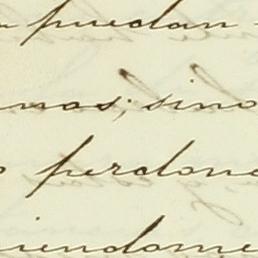 puedan
mas; sino
perdone
iendome